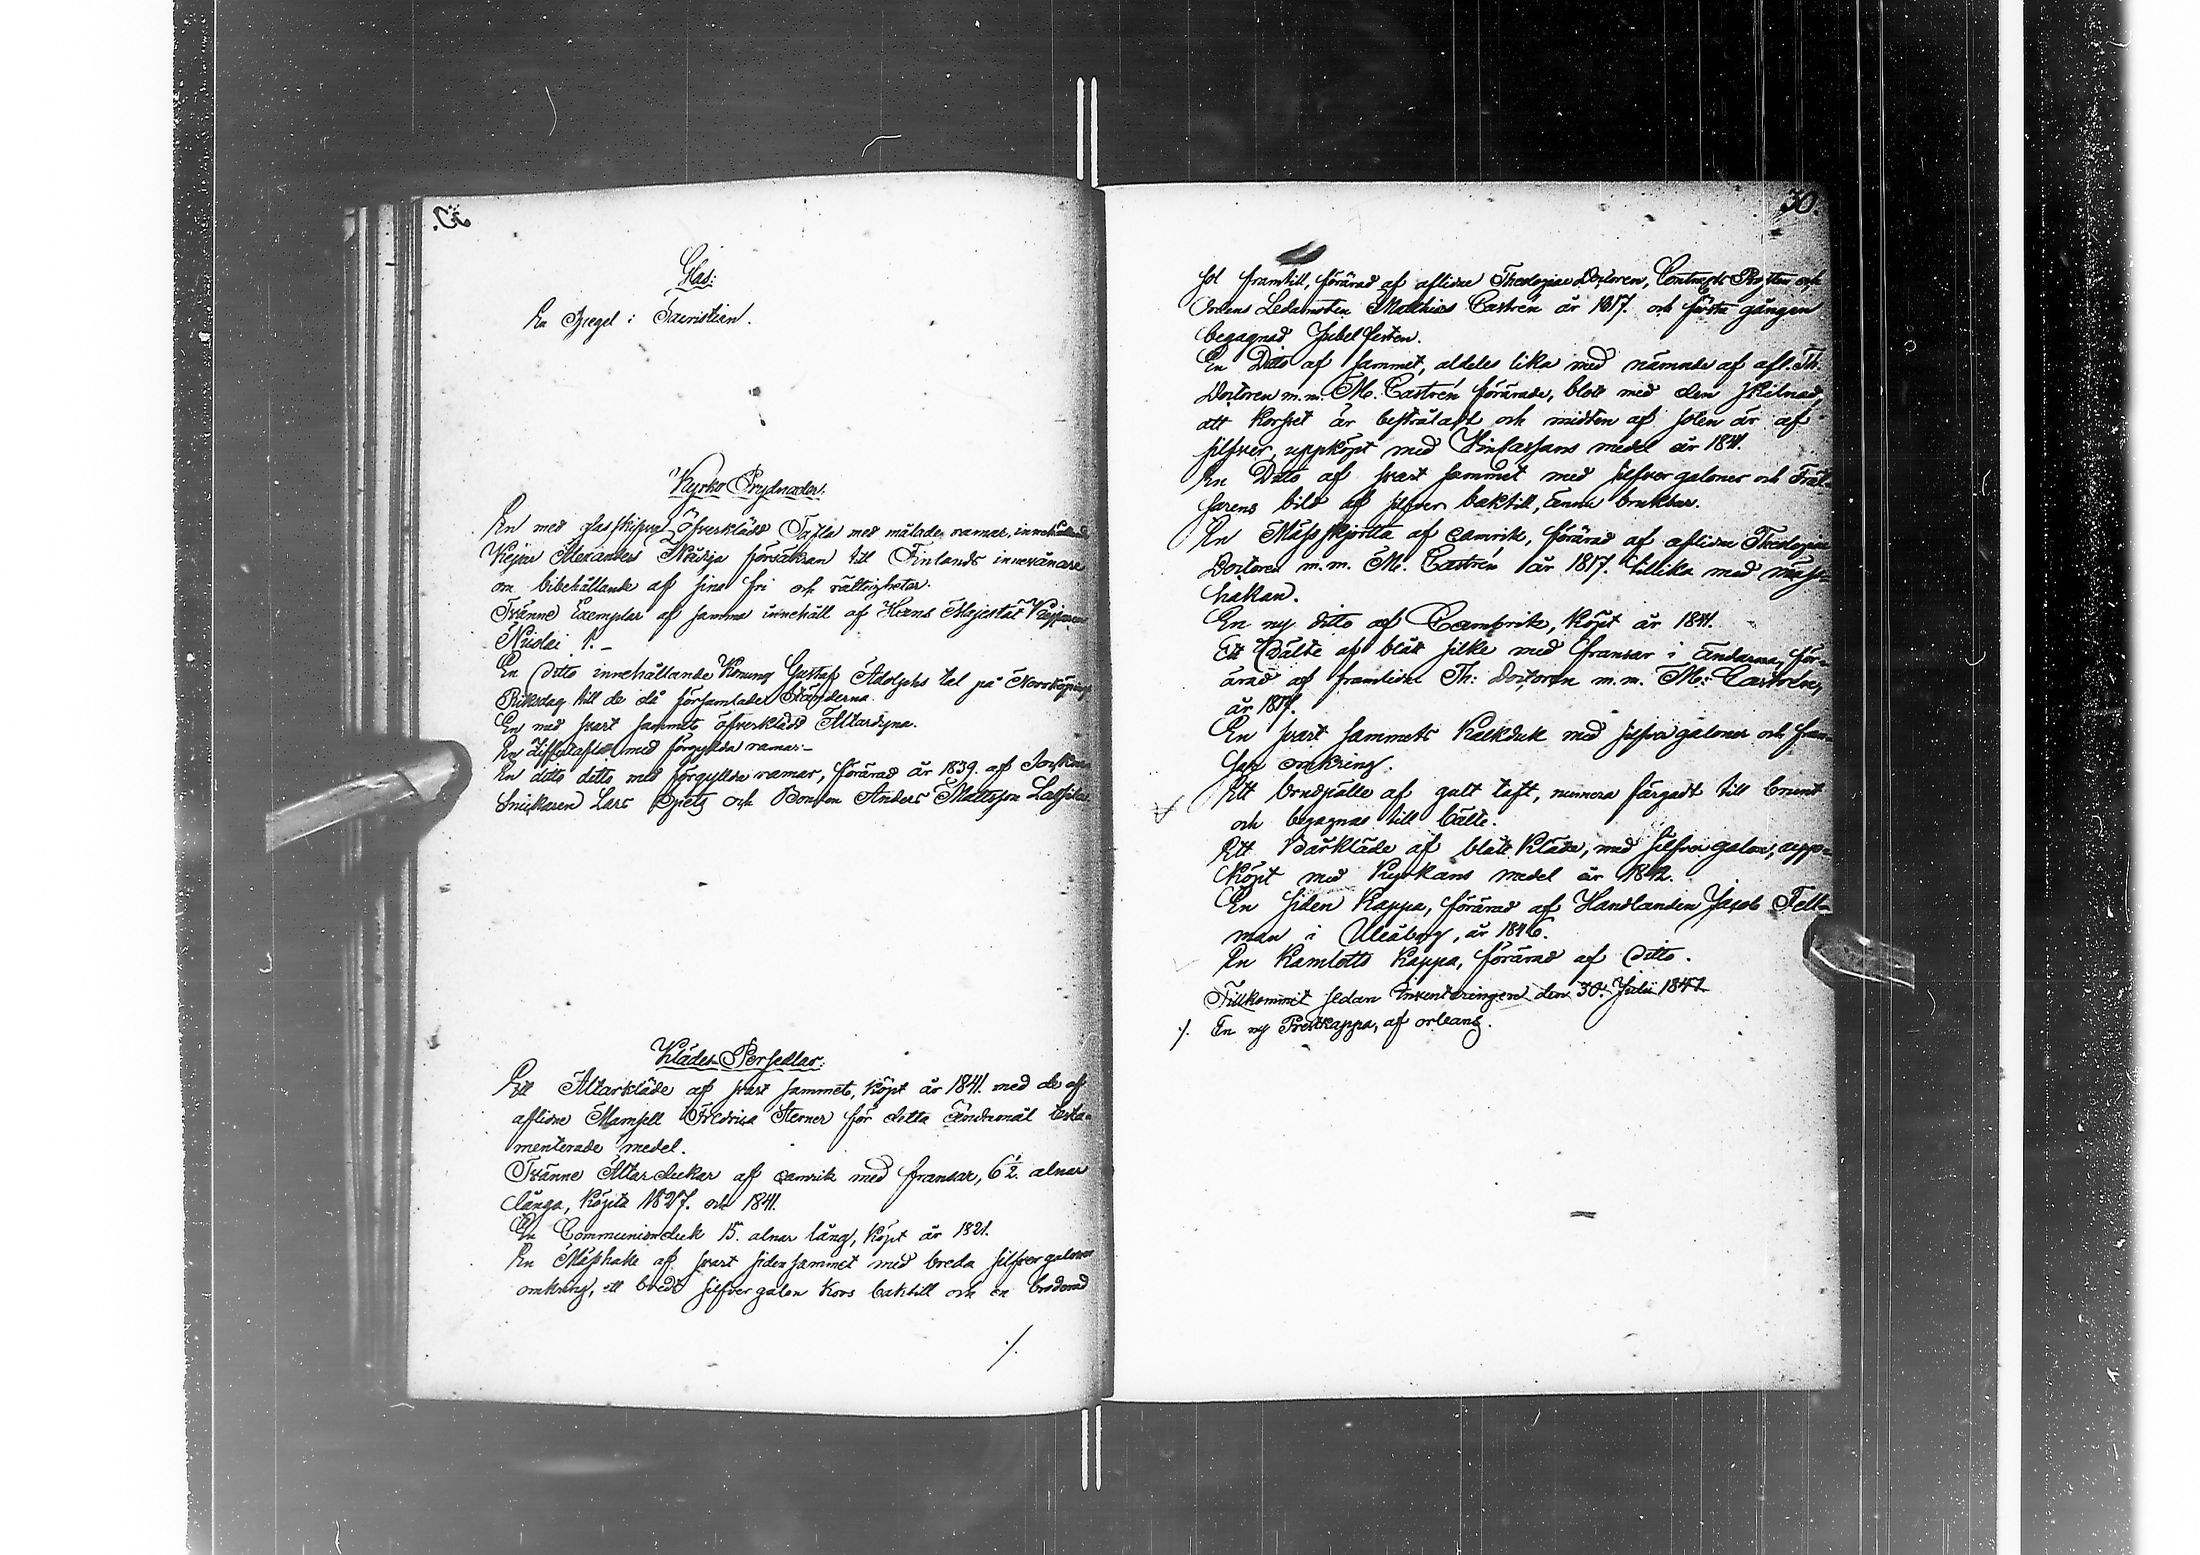 Glas:
En Spegel i Sacristian.
Kyrko Prydnader:
En med glasskifva öfverklädd Tafla med målade ramar, innehållande
Kejsar Alexanders Nådiga försäkran till Finlands innevånare
om bibehållande af sina fri och rättigheter.
Tvänne Exemplar af samma innehåll af Hans Majestät Kejsaren
Nicolai 1.
En Ditto innehållande Konung Gustaf Adolphs tal på Norrköpings
Riksdag till de då församlade Ständerna.
En med svart sammet öfverklädd Altardyna.
En Ziffertafla med förgyllda ramar.
En ditto ditto med förgyllda ramar, förärad år 1839. af
Snickaren Lars och Bonden Anders Mattsson
Klädes Persedlar:
Ett Altarkläde af svart sammet, köpt år 1841. med de af
aflidne Mamsell Fredrica Sterner för detta ändamål testa-
menterade medel.
Tvänne Altardukar af camrik med fransar, 6 1/2. alnar
långa, köpta 1827. och 1841.
En Communionduk 15. alnar lång, köpt år 1821.
En Mässhake af svart siden sammet med breda silfver galoner
omkring, ett bredt silfver galon kors baktill och en broderad
./.
30.
sol framtill, förärad af aflidne Theologiae Doctoren, Contracts Prosten och
Ordens Ledamoten Matthias Castrén år 1817. och första gången
begagnad Jubelfesten.
En Ditto af sammet, aldeles lika med nämnde af afl. Th.
Doctoren m.m. M. Castrén förärade, blott med den skilnad,
att korset är bestråladt och midten af solen är af
silfver, uppköpt med Vincassans medel år 1841.
En Ditto af svart sammet med silfver galoner och Fräl-
sarens bild af silfver baktill, ännu brukbar.
En Mässskjorta af camrik, förärad af aflidne Theologiae
Doctoren m.m. M. Castrén år 1817. tillika med mäss-
hakan.
En ny ditto af Cambrik, köpt år 1841.
Ett Bälte af blått silke med fransar i ändarna, för-
ärad af framlidne Th: Doctoren m.m. M: Castrén,
år 1817.
En svart sammets Kalkduk med silfver galoner och fran-
sar omkring.
Ett brudpälle af gult taft, numera färgadt till brunt
och begagnas till bälte.
Ett Bårkläde af blått Kläde, med silfver galon, upp-
köpt med Kyrkans medel år 1842.
En siden Kappa, förärad af Handlanden Jacob Fell-
man i Uleåborg, år 1846.
En Kamlotts Kappa, förärad af Ditto.
Tillkommit sedan Inventeringen den 30. Julii 1847
./. En ny Prestkappa, af orleans.